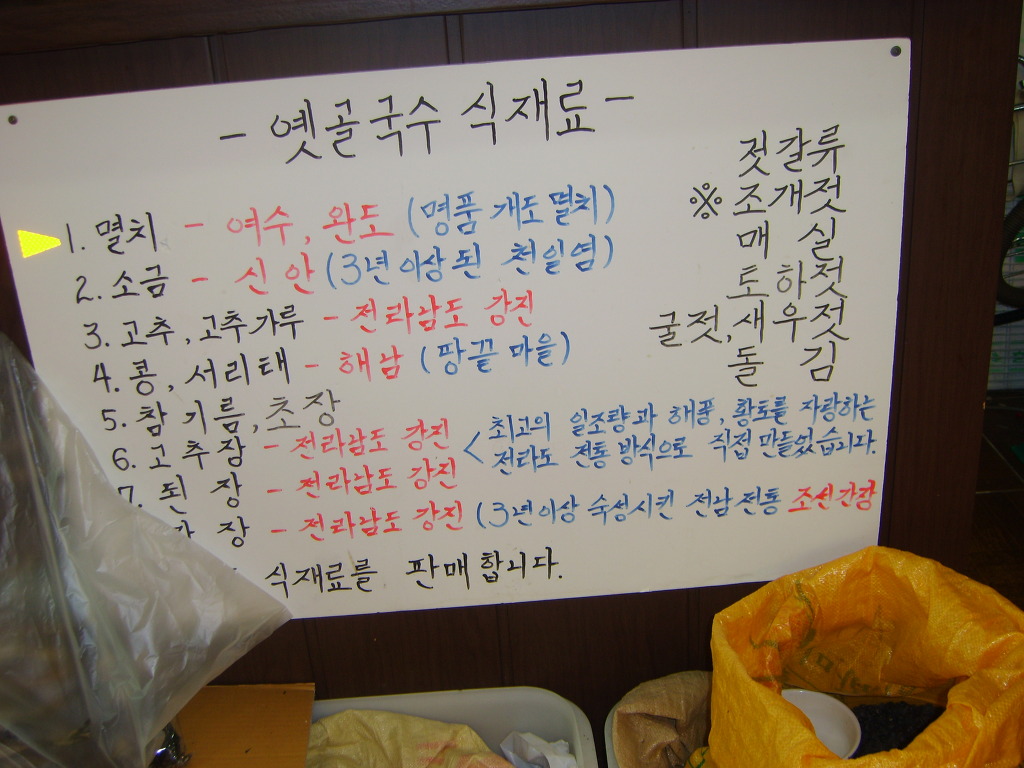 - 옛골국수 식재료 -
1. 멸치 - 여수, 완도 (명품 개도 멸치)
2. 소금 - 신안 (3년이상 된 천일염)
3. 고추, 고추가루 - 전라남도 강진
4. 콩, 서리태 - 해남 (땅끝 마을)
5. 참기름, 초장
6. 고추장 - 전라남도 강진 < 최고의 일조량과 해풍, 황토를 자랑하는
전라도 전통 방식으로 직접 만들었습니다.
7. 된장 - 전라남도 강진
장 - 전라남도 강진 (3년이상 숙성시킨 전남전통 조선간장
식재료를 판매합니다.
젓갈류
※ 조개젓
매실
토하젓
굴젓, 새우젓
돌김